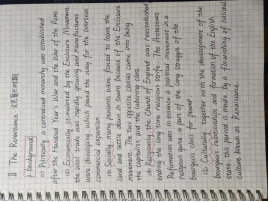 II The Renaissance 文艺复兴时期
1. Background:
(1) Politically: a centralized monarchy was established
after the Hundred Years' War and the War of the Roses.
(2) Economically: stimulated by the Enclosure Movement,
the wool trade was rapidly growing and Manufactures
were developing, which paved the way for the overseas
commercial expansion.
(3) Socially: many peasants were forced to leave the
land and settle down in towns because of the Enclosure
Movement. The two opposite classes came into being:
the capitalist and the laboring class.
(4) Religiously: the Church of England was reestablished
ending the long time religious strife. The Protestant
Reformation was in essence a political movement in a
religious guise, a part of the long struggle of the
bourgeois class for power
(5) Culturally: together with the development of the
bourgeois relationships and formation of the English
state this period is marked by a flourishing of national
culture known as Renaissance.